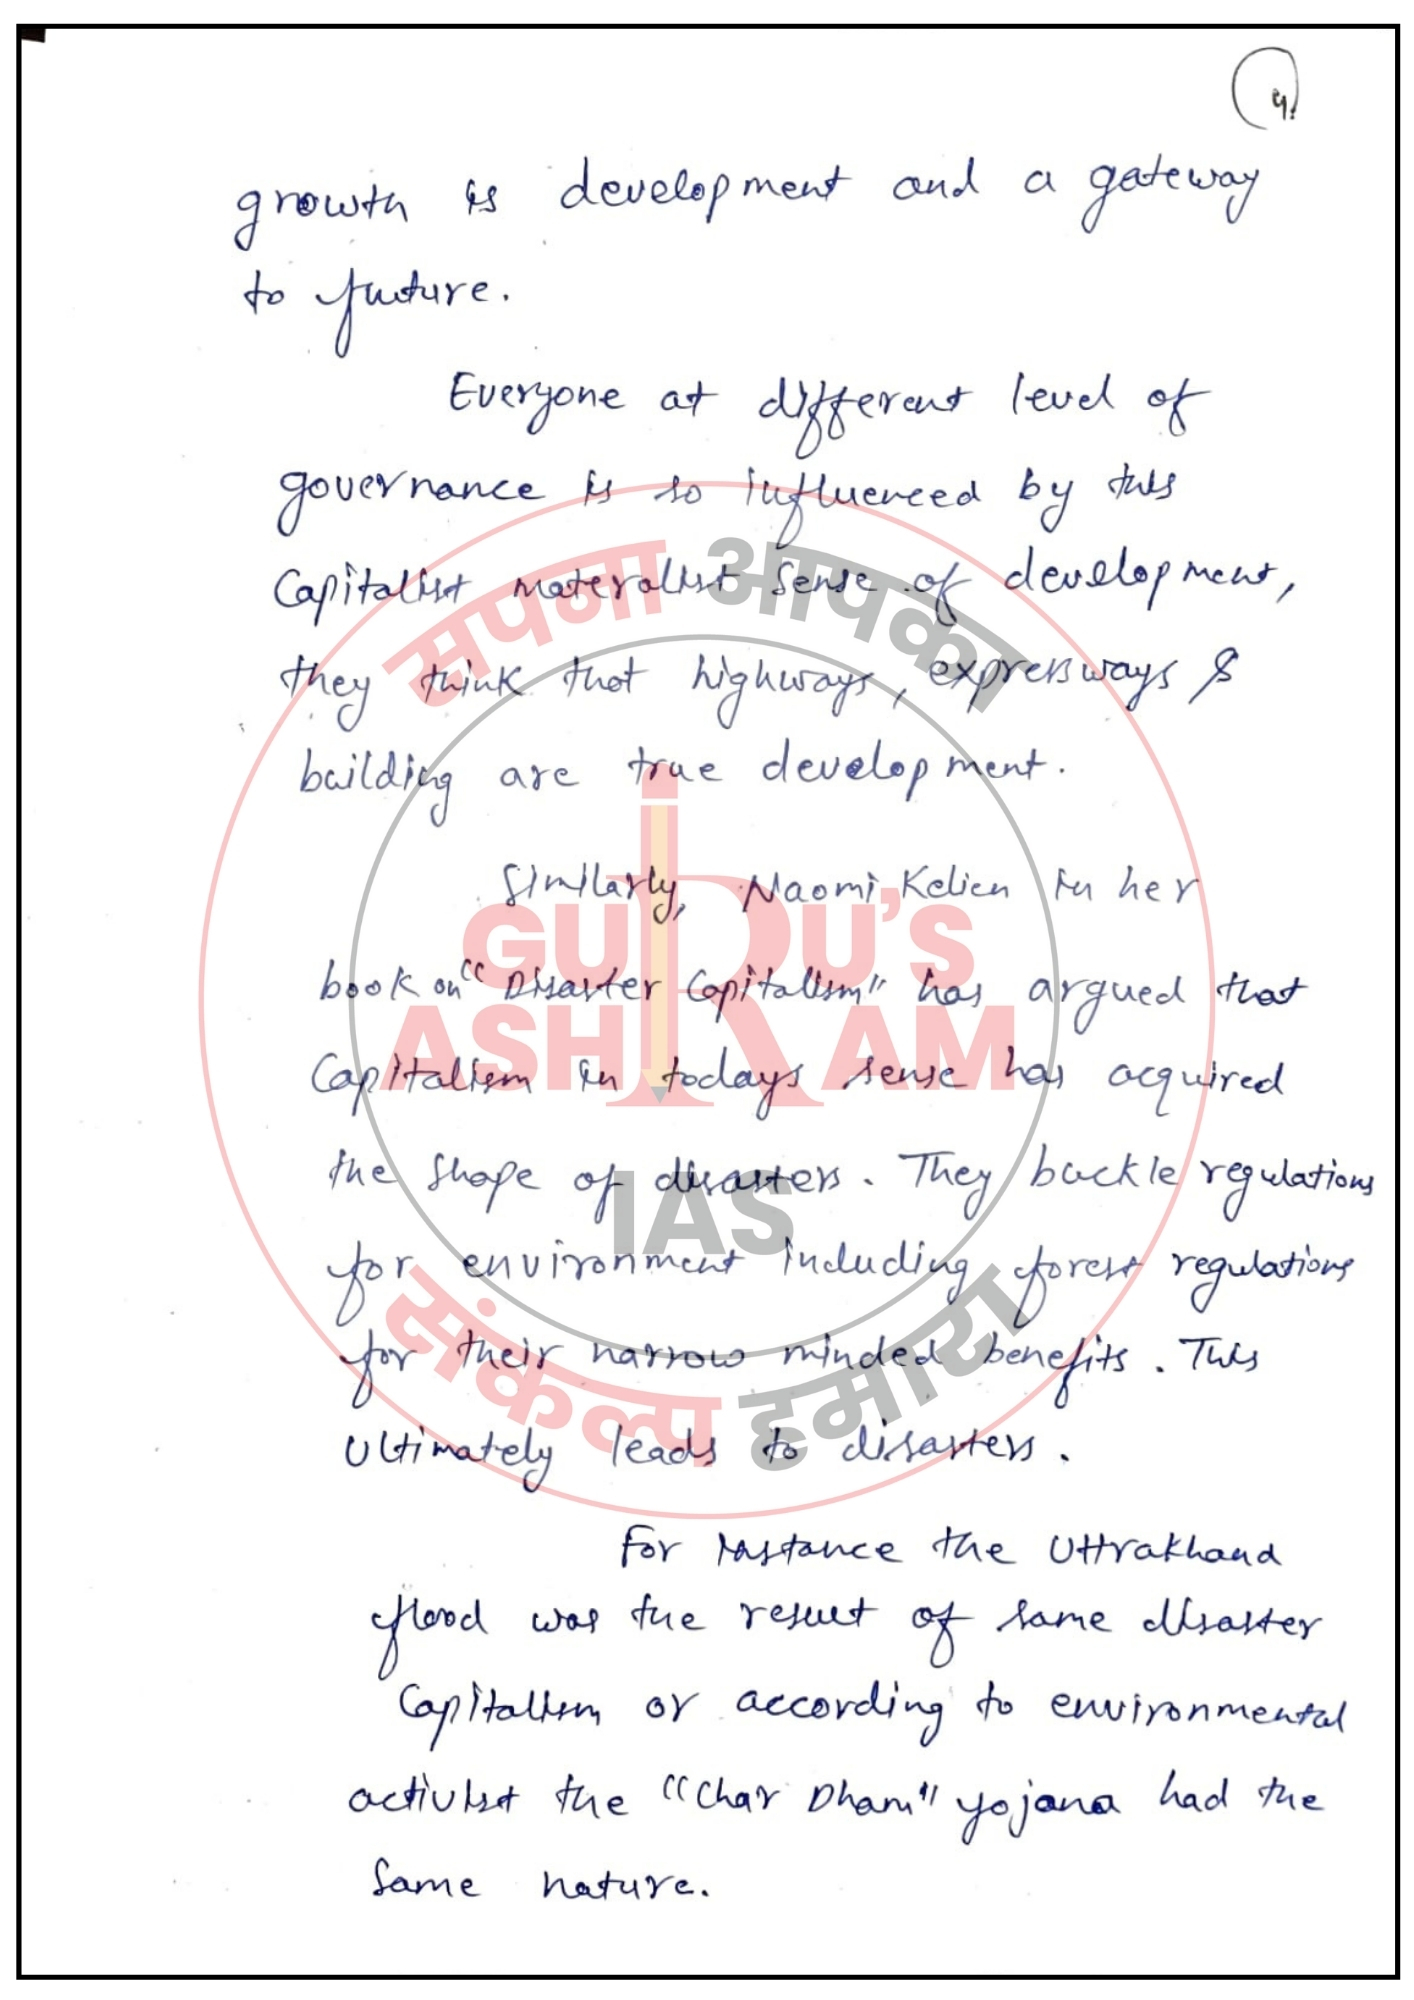 4.
growth is development and a gateway
to future.
Everyone at different level of
governance is so influenced by this
Capitalist materalist sense of development,
they think that highways, expressways &
building are true development.
Similarly, Naomi Kelien in her
book on "Disaster Capitalism" has argued that
Capitalism in todays sense has acquired
the shape of disasters. They buckle regulations
for environment including forest regulations
for their narrow minded benefits. This
Ultimately leads to disasters.
For instance the Uttrakhand
flood was the result of same disaster
Capitalism or according to environmental
activist the "Char Dham" yojana had the
Same nature.
सपना आपका
GURU'S
ASHRAM
IAS
संकल्प हमारा